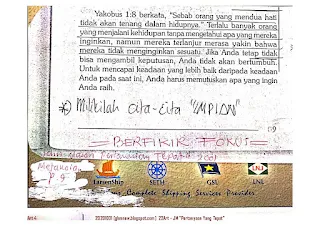 Yakobus 1:8 berkata, "Sebab orang yang mendua hati
tidak akan tenang dalam hidupnya." Terlalu banyak orang
yang menjalani kehidupan tanpa mengetahui apa yang mereka
inginkan, namun mereka terlanjur merasa yakin bahwa
mereka tidak menginginkan sesuatu. Jika Anda tetap tidak
bisa mengambil keputusan, Anda tidak akan bertumbuh.
Untuk mencapai keadaan yang lebih baik daripada keadaan
Anda pada saat ini, Anda harus memutuskan apa yang ingin
Anda raih.
Milikilah cita-cita "IMPIAN"
= BERFIKIR FOKUS =
P 9
LarsenShip SETH GSU LNL
Complete Shipping Services Provider